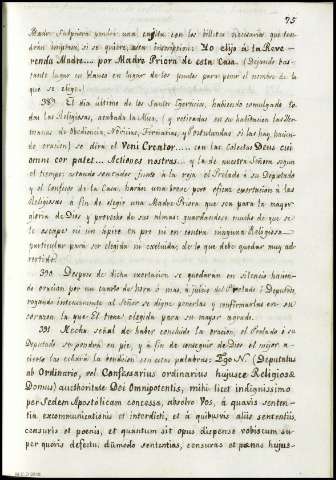 75
Madre Supriora pondrá una cajita con los billetes necesarios que ten-
drán impresa, si se quiere, esta inscripcion: Yo elijo á la Reve-
renda Madre... por Madre Priora de esta Casa. (Dejando bas-
tante lugar en blanco en lugar de los puntos para poner el nombre de la
que se elige.
389 El dia último de los Santos Egercicios, habiendo comulgado to-
das las Religiosas, acabada la Misa, (y retiradas en su habitacion las Her-
manas de Obediencia, Novicias, Freynarias, y Postulandas si las hay, hacien-
do oracion) se dirá el Veni Creator..... con las Colectas Deus cui
omne cor patet.... Actiones nostras.... y la de nuestra Señora segun
el tiempo: estando sentadas junto á la reja el Prelado ó su Deputado
y el Confesor de la Casa, harán una breve pero eficaz exortacion á las
Religiosas á fin de elegir una Madre Priora que sea para la mayor
gloria de Dios y provecho de sus almas; guardandose mucho de que se
le escape ni un ápice en pro ni en contra ninguna Religiosa
particular para ser elegida ni excluida; de lo que debe quedar muy ad-
vertido.
390 Despues de dicha exortacion se quedarán en silencio hacien-
do oracion por un cuarto de hora ó mas, á juicio del Prelado ó Deputado,
rogando intensamente al Señor se digne ponerlas y confirmarlas en su
corazon la que El tiene elegida para su mayor agrado.
391 Hecha señal de haber concluido la oracion, el Prelado ó su
Deputado se pondrá en pie, y á fin de conseguir de Dios el mejor a-
cierto las echará la bendicion con estas palabras: Ego N. (Deputatus
ab Ordinario, vel Confessarius ordinarius hujusce Religiosæ
Domus) aucthoritate Dei Omnipotentis, mihi licet indignissimo
per Sedem Apostolicam concessa, absolvo Vos, á quavis senten-
tia excommunicationis et interdicti, et á quibusvis aliis sententiis,
censuris et pœnis, et quantum sit opus dispenso vobiscum su-
per quovis defectu, dummodo sententias, censuras et pœnas hujus-